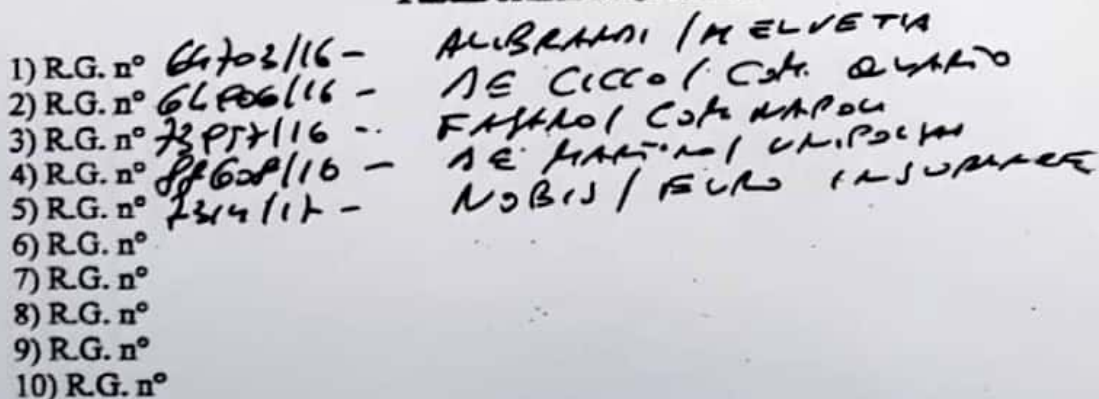 1) R.G. n° 64703/16 - ALIBRANDI / HELVETIA
2) R.G. n° 64806/16 - DE CICCO / COM. QUARTO
3) R.G. n° 73957/16 - FASANO / COM NAPOLI
4) R.G. n° 88608/16 - DE MARTINO / UNIPOLSAI
5) R.G. n° 7314/17 - NOBIS / EURO INSURANCE
6) R.G. n°
7) R.G. n°
8) R.G. n°
9) R.G. n°
10) R.G. n°